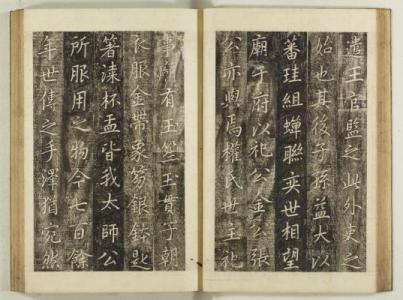 遣王官監之此外吏之
始也其後子孫益大以
蕃珪組蟬聯奕世相望
廟于府以祀公金公張
公亦與焉權氏世主祀
事廟有玉玉子朝
衣服金帶象笏銀匙
箸漆杯盂皆我太師公
所服用之物今七百餘
年世傳之手澤猶宛然